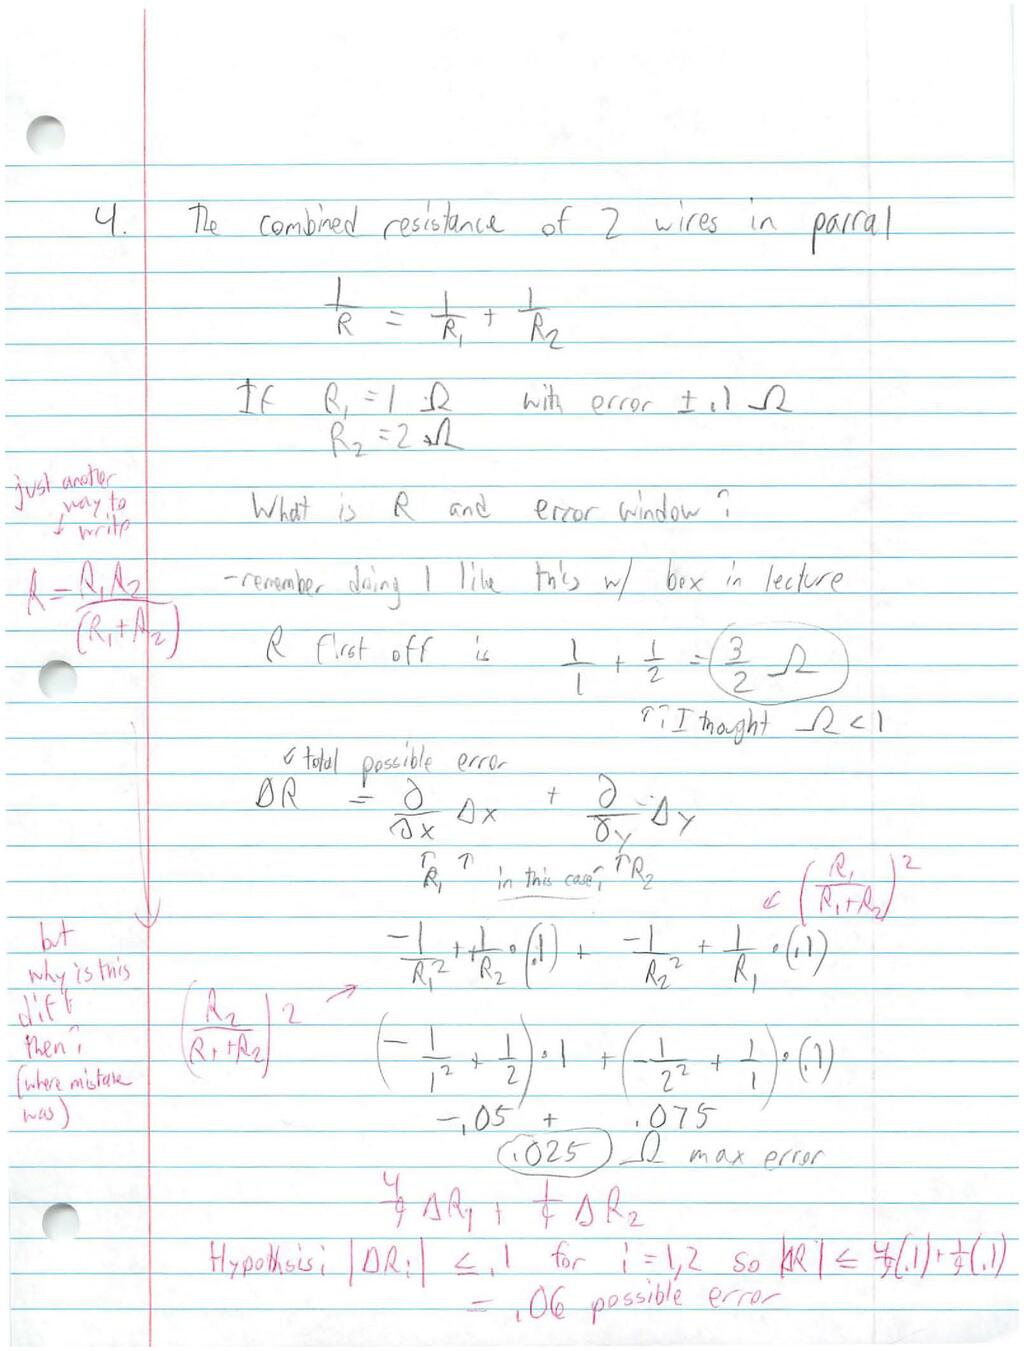 4. The combined resistance of 2 wires in parral
1/R = 1/R₁ + 1/R₂
If R₁ = 1 Ω with error ± .1 Ω
R₂ = 2 Ω
What is R and error window?
just another
way to
↓ write
R = R₁R₂/(R₁+R₂)
-remember doing 1 like this w/ box in lecture
R first off is 1/1 + 1/2 = 3/2 Ω
↑? I thought Ω < 1
↙ total possible error
ΔR = ∂/∂x Δx + ∂/∂y · Δy
↑ R₁ ↑ in this case, ↑ R₂
↙ (R₁/(R₁+R₂))²
-1/R₁² + 1/R₂ · (.1) + -1/R₂² + 1/R₁ · (.1)
but
why is this
diff
then?
(where mistake
was)
(R₂/(R₁+R₂))² ↗
(-1/1² + 1/2) · .1 + (-1/2² + 1/1) · (.1)
-.05 + .075
.025 Ω max error
4/9 ΔR₁ + 1/9 ΔR₂
Hypothsis: |ΔRᵢ| ≤ .1 for i = 1,2 so |ΔR| ≤ 4/9(.1) + 1/9(.1)
= .06 possible error